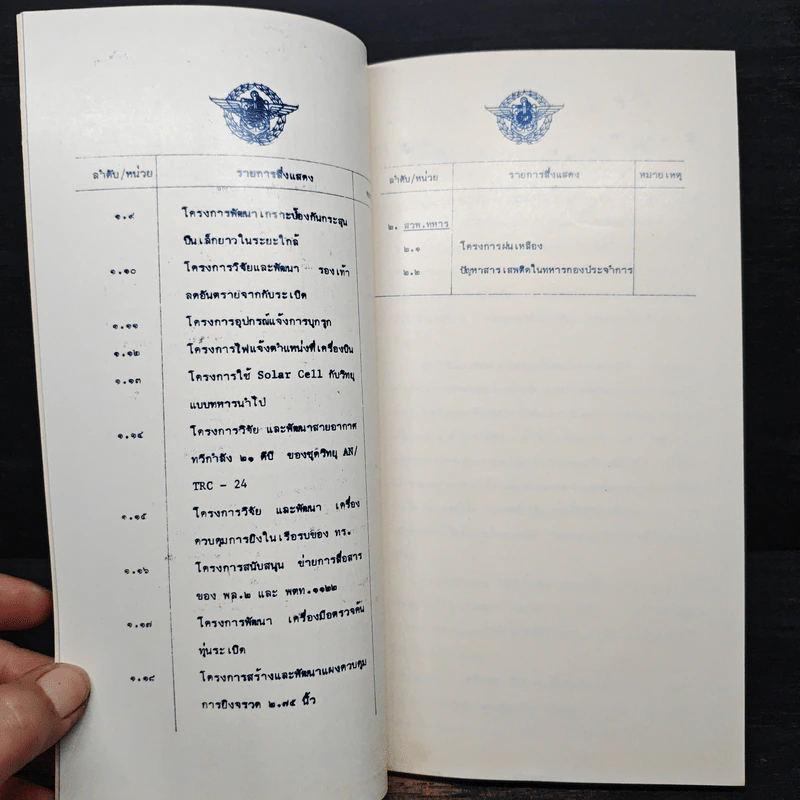 ลำดับ/หน่วย รายการสิ่งแสดง
๑.๙ โครงการพัฒนาเกราะป้องกันกระสุน
ปืนเล็กยาวในระยะใกล้
๑.๑๐ โครงการวิจัยและพัฒนา รองเท้า
ลดอันตรายจากกับระเบิด
๑.๑๑ โครงการอุปกรณ์แจ้งการบุกรุก
๑.๑๒ โครงการไฟแจ้งตำแหน่งที่เครื่องบิน
๑.๑๓ โครงการใช้ Solar Cell กับวิทยุ
แบบทหารนำไป
๑.๑๔ โครงการวิจัย และพัฒนาสายอากาศ
ทวีกำลัง ๒๑ ดีบี ของชุดวิทยุ AN/
TRC - 24
๑.๑๕ โครงการวิจัย และพัฒนา เครื่อง
ควบคุมการยิงในเรือรบของ ทร.
๑.๑๖ โครงการสนับสนุน ข่ายการสื่อสาร
ของ พล.๒ และ พตท.๑๑๒๒
๑.๑๗ โครงการพัฒนา เครื่องมือตรวจค้น
ทุ่นระเบิด
๑.๑๘ โครงการสร้างและพัฒนาแผงควบคุม
การยิงจรวด ๒.๗๕ นิ้ว
ลำดับ/หน่วย รายการสิ่งแสดง หมายเหตุ
๒. สวพ.ทหาร
๒.๑ โครงการฝนเหลือง
๒.๒ ปัญหาสารเสพติดในทหารกองประจำการ